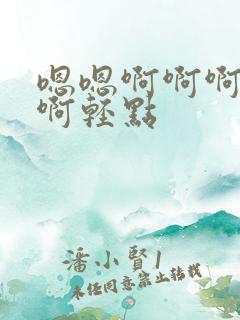 嗯嗯啊啊啊
啊轻點
潘小賢1
未任同意禁止转载